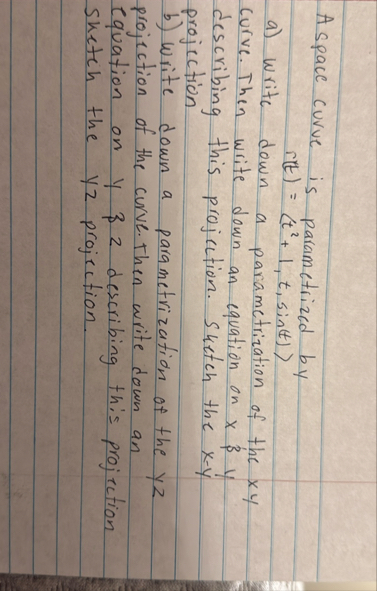 A space curve is parametrized by
r(t) = ⟨t² + 1, t, sin(t)⟩
a) write down a parametrization of the xy
curve. Then write down an equation on x & y
describing this projection. Sketch the x-y
projection
b) write down a parametrization of the yz
projection of the curve. Then write down an
equation on y & z describing this projection
sketch the yz projection.